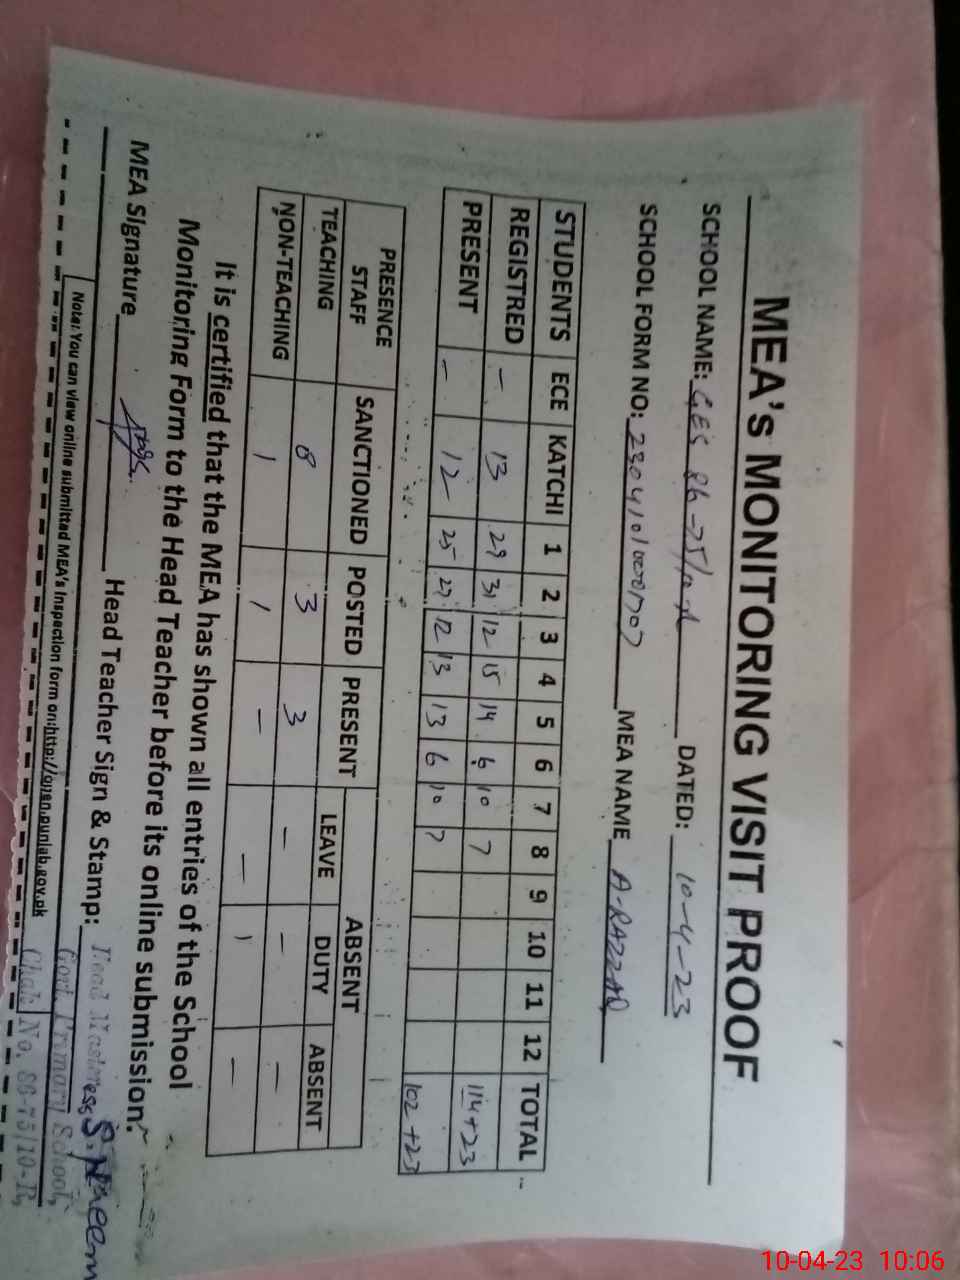 MEA's MONITORING VISIT PROOF
SCHOOL NAME: GES 86-75/10-R DATED: 10-4-23
SCHOOL FORM NO: MEA NAME A-RAZZAQ
STUDENTS ECE KATCHI 1 2 3 4 5 6 7 8 9 10 11 12 TOTAL
REGISTRED - 13 29 31 12 15 14 6 10 7 114+23
PRESENT - 12 25 27 12 13 13 6 10 7 102+23
PRESENCE STAFF SANCTIONED POSTED PRESENT ABSENT
LEAVE DUTY ABSENT
TEACHING 8 3 3 - - -
NON-TEACHING 1 1 - - - -
It is certified that the MEA has shown all entries of the School
Monitoring Form to the Head Teacher before its online submission.
MEA Signature Head Teacher Sign & Stamp:
Head Mistress
Govt. Primary School,
Chak No. 86-75/10-R,
Note: You can view online submitted MEA's Inspection form on:http://open.punjab.gov.pk
10-04-23 10:06